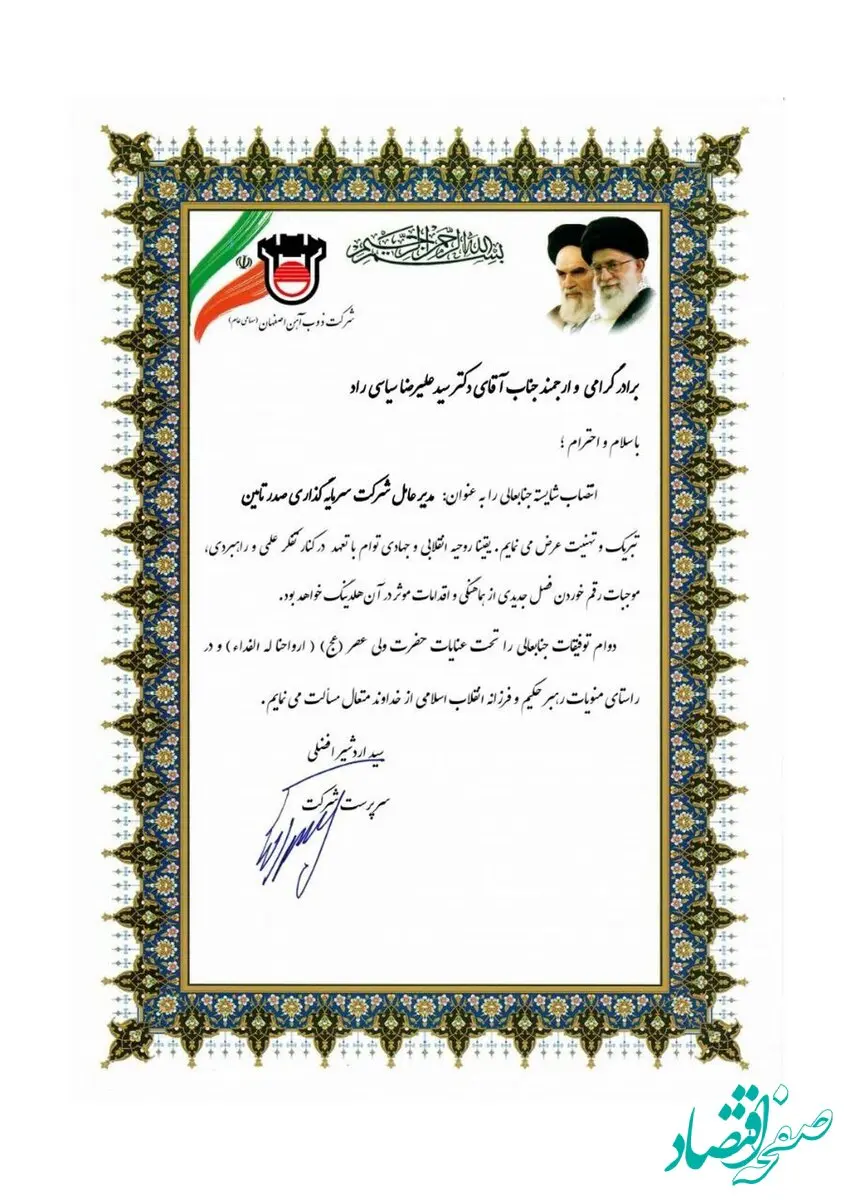 بسم الله الرحمن الرحیم
شرکت ذوب آهن اصفهان (سهامی عام)
برادر گرامی و ارجمند جناب آقای دکتر سید علیرضا سیاسی راد
با سلام و احترام ؛
انتصاب شایسته جنابعالی را به عنوان: مدیر عامل شرکت سرمایه گذاری صدر تامین
تبریک و تهنیت عرض می نمایم. یقینا روحیه انقلابی و جهادی توام با تعهد در کنار تفکر علمی و راهبردی،
موجبات رقم خوردن فصل جدیدی از هماهنگی و اقدامات موثر در آن هلدینگ خواهد بود.
دوام توفیقات جنابعالی را تحت عنایات حضرت ولی عصر (عج) (ارواحنا له الفداء) و در
راستای منویات رهبر حکیم و فرزانه انقلاب اسلامی از خداوند متعال مسألت می نمایم.
سید اردشیر افضلی
سرپرست شرکت
صفحه اقتصاد